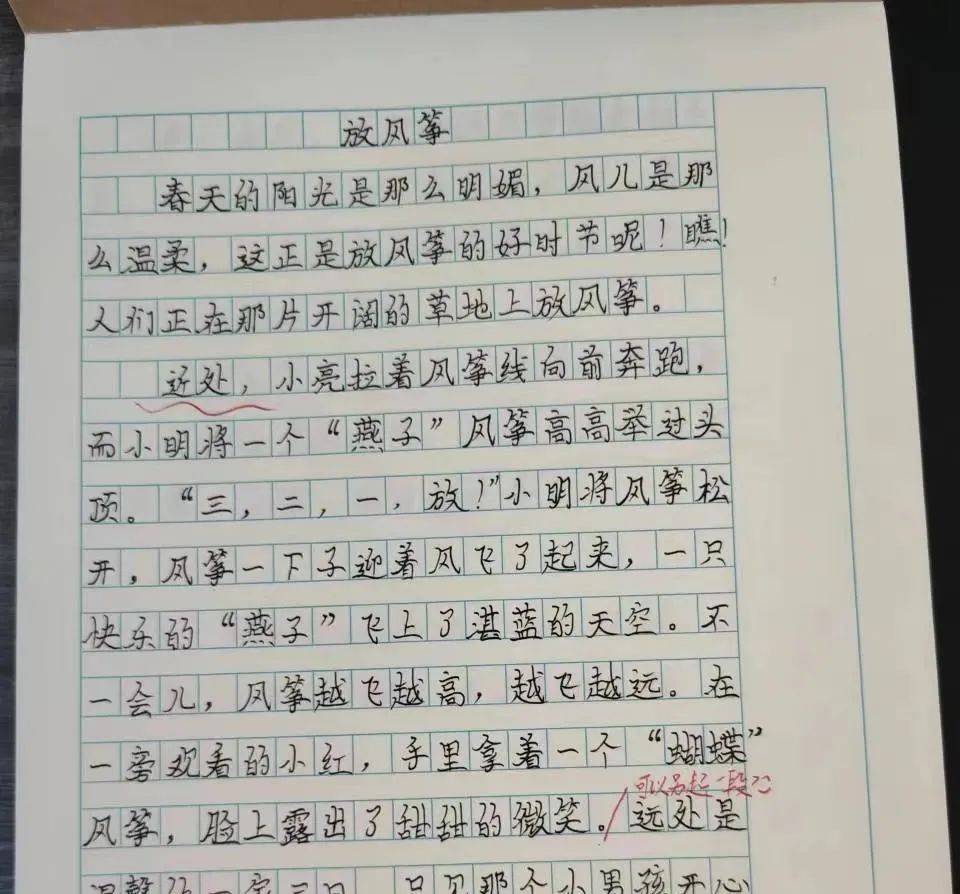 放风筝
春天的阳光是那么明媚，风儿是那
么温柔，这正是放风筝的好时节呢！瞧！
人们正在那片开阔的草地上放风筝。
近处，小亮拉着风筝线向前奔跑，
而小明将一个“燕子”风筝高高举过头
顶。“三，二，一，放！”小明将风筝松
开，风筝一下子迎着风飞了起来，一只
快乐的“燕子”飞上了湛蓝的天空。不
一会儿，风筝越飞越高，越飞越远。在
一旁观看的小红，手里拿着一个“蝴蝶”
可以另起一段
风筝，脸上露出了甜甜的微笑。远处是
温馨的一家三口，只见那个小男孩开心